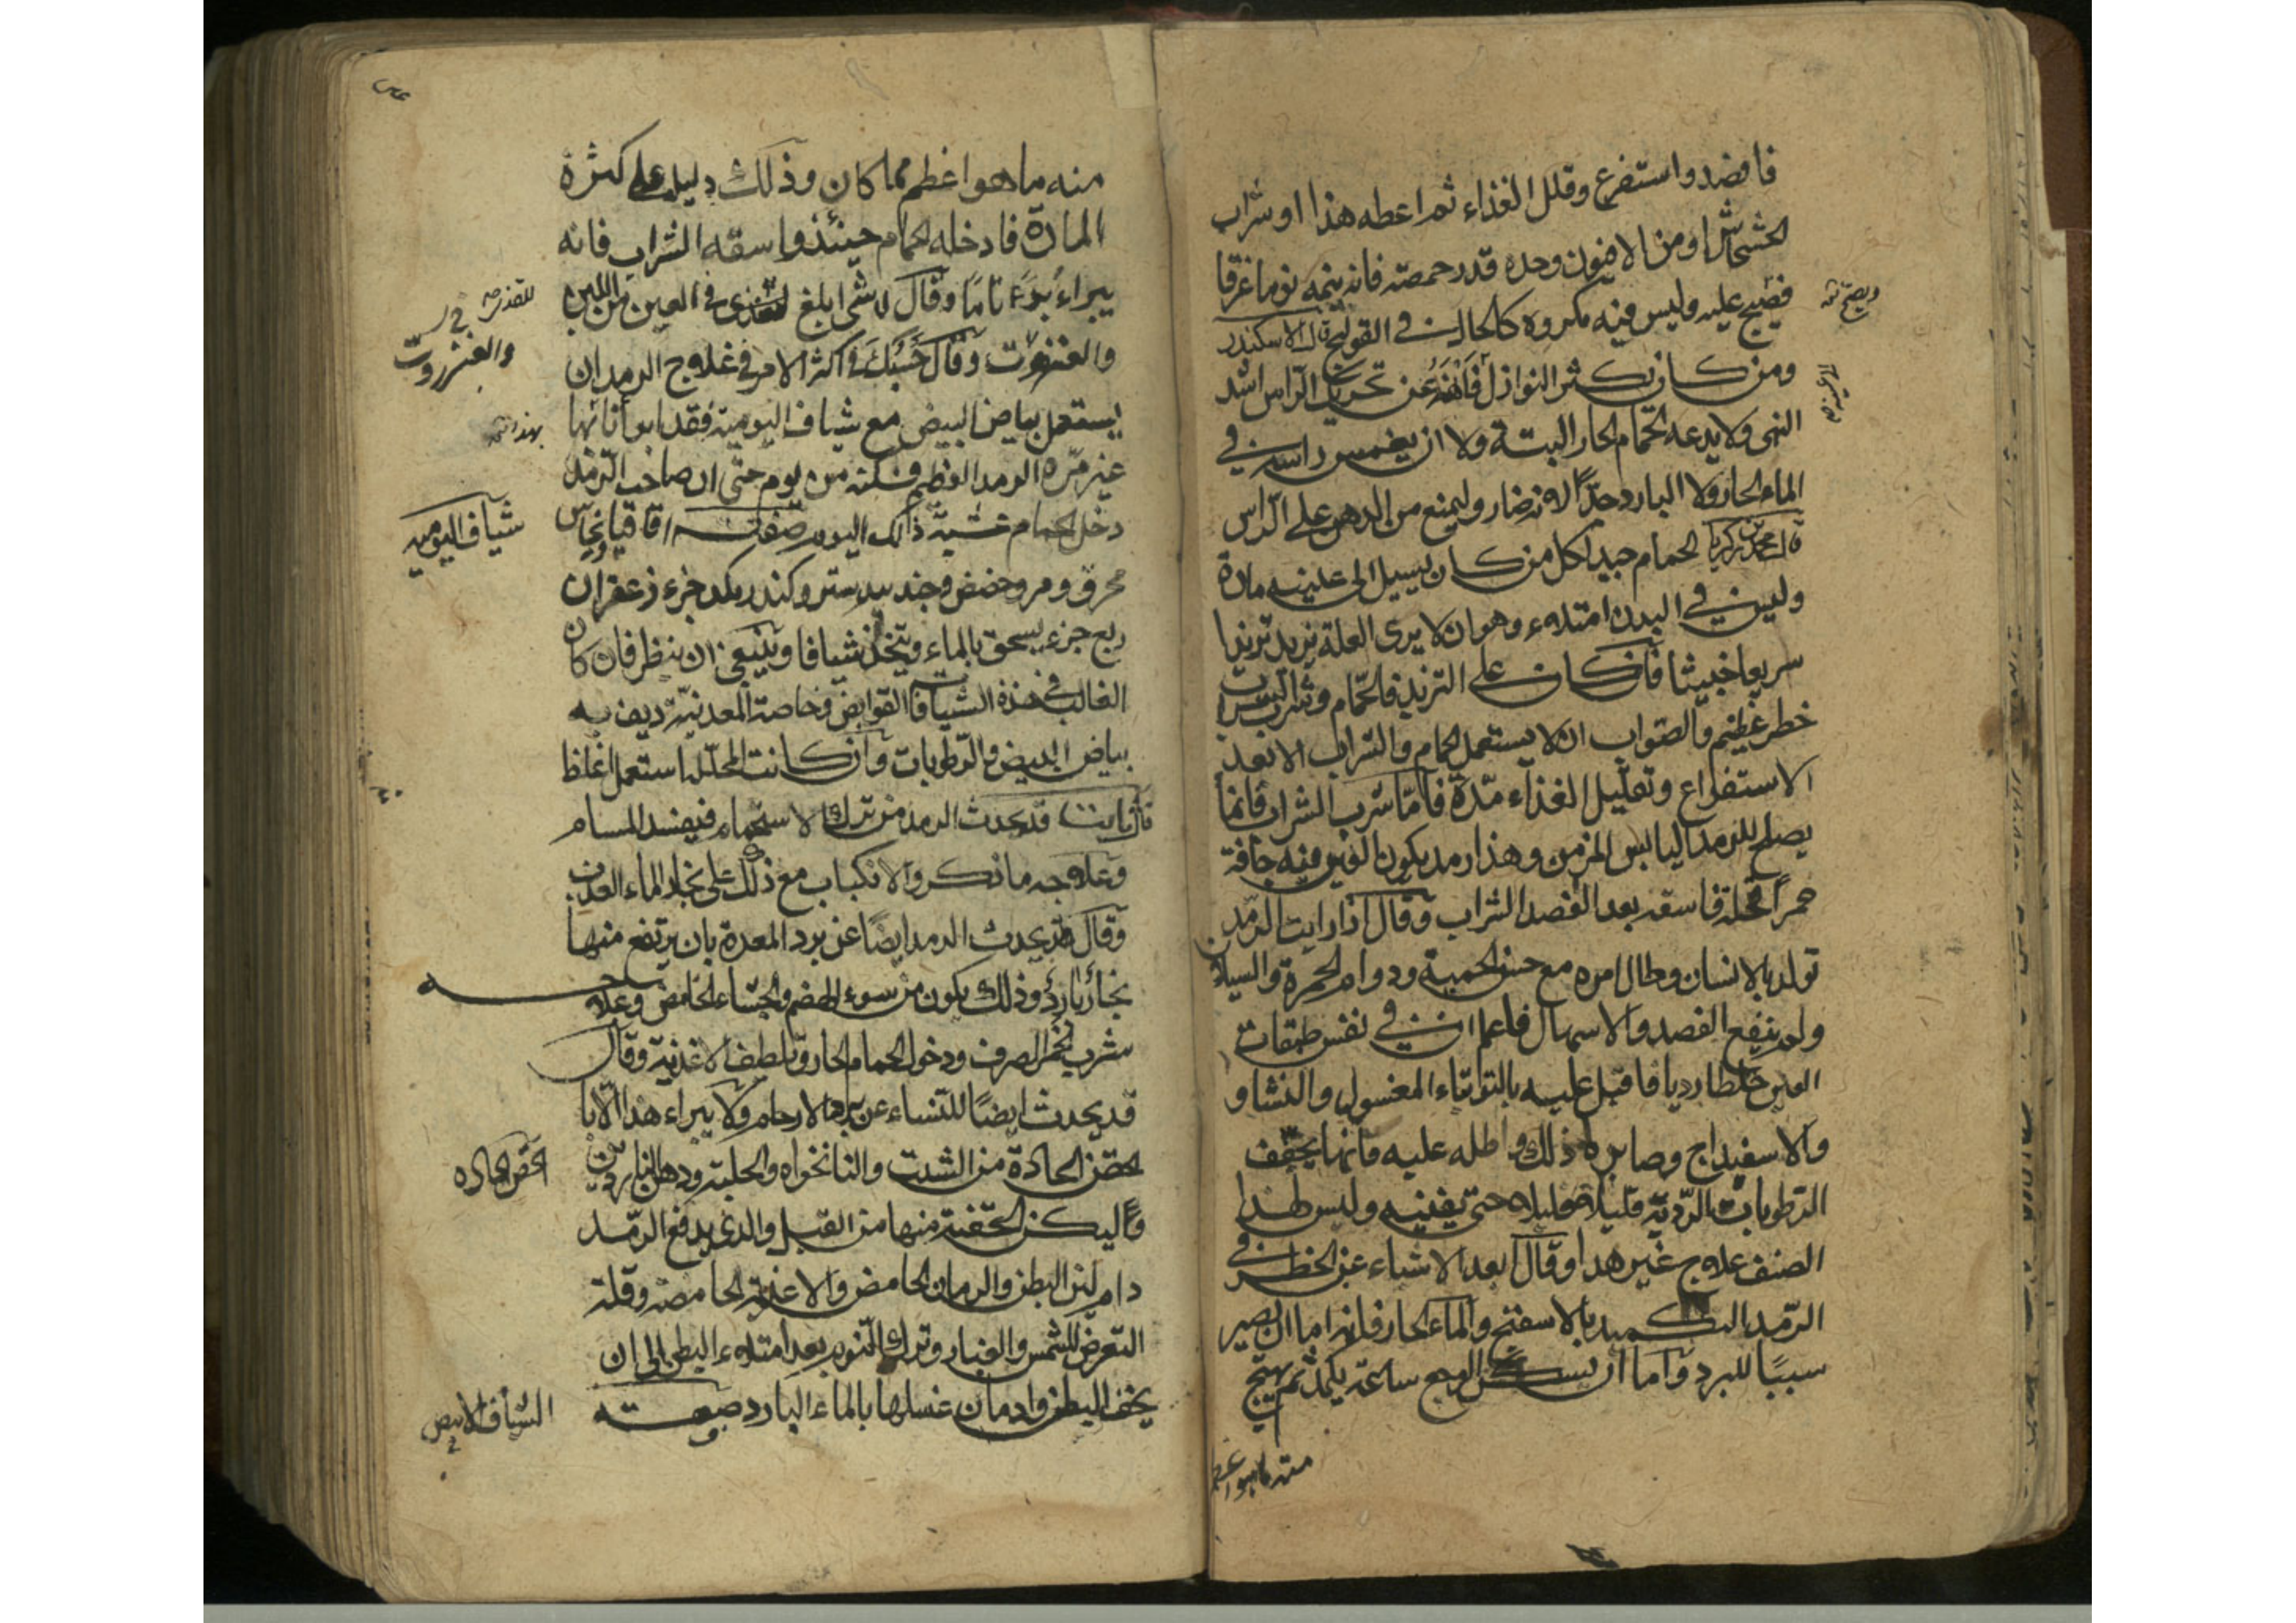 فافصد واستفرغ وقلل الغذاء ثم اعطه هذا او شراب
الخشخاش او من الافيون وحده قدر حمصة فانه ينيمه نوما غرقا
فيصبح عليه وليس فيه مكروه كالحال في القولنج قال الاسكندر
ومن كان تكثر النوازل فانهه عن تحريك الراس اشد
النهى ولا يدعه الحمام الحار البتة ولا ان يغمس راسه في
الماء الحار ولا البارد جدًا لانه ضار وليمنع من الدهن على الراس
قال محمد بن زكريا الحمام جيد لكل من كان يسيل الى عينيه مادة
وليس في البدن امتلاء وهو ان لا يرى العلة تزيد تزيدا
سريعا خبيثا فان كان على التزيد فالحمام وشرب الشراب
خطر عظيم والصواب ان لا يستعمل الحمام والشراب الا بعد
الاستفراغ وتقليل الغذاء مدة فاما شرب الشراب فانما
يصلح للرمد اليابس المزمن وهذا رمد يكون العين فيه جافة
حمرا قحلة فاسقه بعد الفصد الشراب وقال اذا رايت الرمد
تولد بالانسان وطال امره مع حسن الحمية ودوام الحمرة والسيلان
ولم ينفع الفصد والاسهال فاعلم ان في نفس طبقات
العين خلطا رديا فاقبل عليه بالتوتياء المغسول والنشا و
الاسفيداج وصابره ذلك واطله عليه فانها يجفف
الرطوبات الردية قليلا قليلا حتى يفنيه وليس لهذا
الصنف علاج غير هذا وقال ابعد الاشياء عن الخطر في
الرمد التكميد بالاسفنج والماء الحار فانه اما ان يصير
سببًا للبرد واما ان يسكن الوجع ساعة يكمد ثم يهيج
منه ما هو اعظم
ويصح
منه ما هو اعظم مما كان وذلك دليل على كثرة
المادة فادخله الحمام حينئذ واسقه الشراب فانه
يبراء بدءًا تامًا وقال لا شى ابلغ في العين من اللبن
والعنزروت وقال حسبك في اكثر الامر في علاج الرمد ان
يستعمل بياض البيض مع شياف اليومية فقد ابرأنا بها
غير مرة الرمد العظيم من يوم حتى ان صاحب الرمد
دخل الحمام عشية ذلك اليوم صفته اقاقيا نحاس
محرق ومر وحضض وجندبيدستر وكندر بلد جزء زعفران
ربع جزء يسحق بالماء ويتخذ شيافا وينبغي ان ينظر فان كان
الغالب في هذه الشيافات القوابض وخاصة المعدنية ديف به
بياض البيض والرطوبات وان كانت المحللة استعمل اغلظ
قال ثابت قد يحدث الرمد من ترك الاستحمام فيفسد المسام
وعلاجه ما نذكر والانكباب مع ذلك على بخار الماء العذب
وقال قد يحدث الرمد ايضًا عن برد المعدة بان يرتفع منها
بخار بارد وذلك يكون من سوء الهضم والجشاء الحامض وعلاجه
شرب الخمر الصرف ودخول الحمام الحار وتلطيف الاغذية وقال
قد يحدث ايضًا للنساء عن الارحام ولا يبراء هذا الا با
لحقن الحادة من الشبت والنانخواه والحلبة ودهن الناردين
وليكن الحقنة منها من القبل والذي يدفع الرمد
دام لين البطن والرمان الحامض والاغذية الحامضة وقلة
التعرض للشمس والغبار وترك النوم بعد امتلاء البطن الى ان
يخف البطن وادمان غسلها بالماء البارد صفته
والعنزروت
شياف اليومية
الحقن الحاده
الشياف الابيض